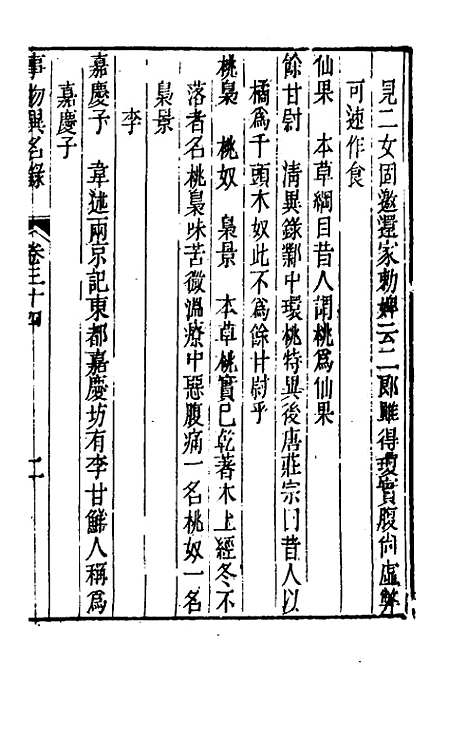 見二女固邀還家勅婢云二郎雖得瓊實腹尚虛弊
可速作食
仙果　本草綱目昔人謂桃為仙果
餘甘尉　清異錄鄴中環桃特異後唐莊宗曰昔人以
橘為千頭木奴此不為餘甘尉乎
桃梟　桃奴　梟景　本草桃實已乾著木上經冬不
落者名桃梟味苦微溫療中惡腹痛一名桃奴一名
梟景
李
嘉慶子　韋述兩京記東都嘉慶坊有李甘鮮人稱為
嘉慶子
事物異名錄　卷三十四　二